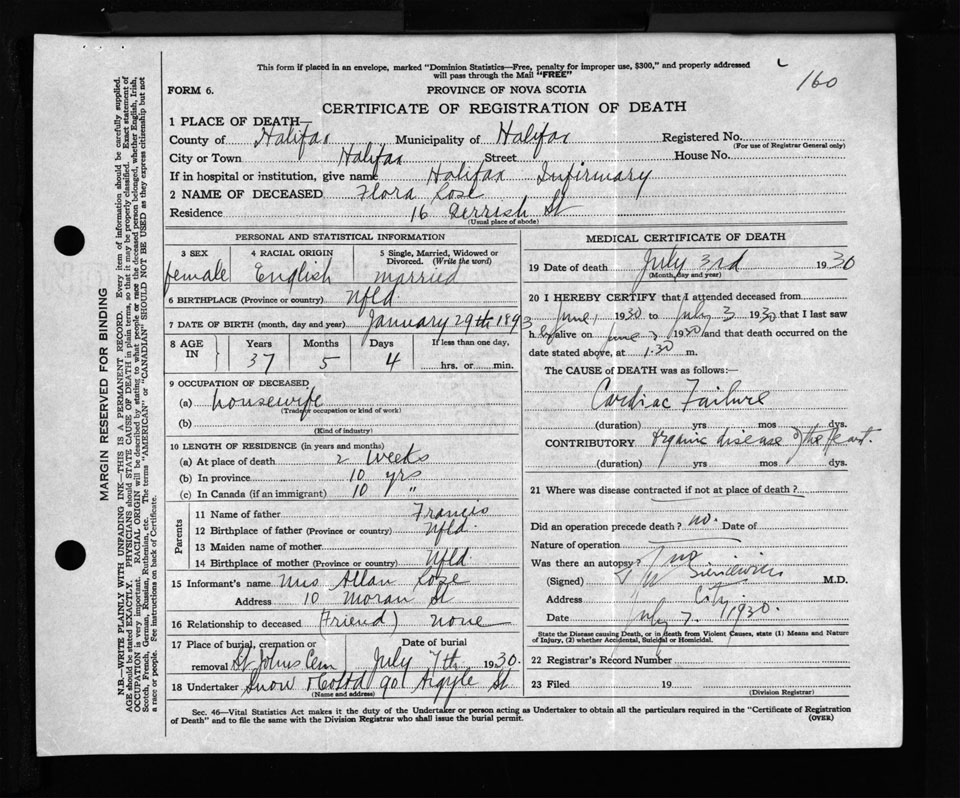 This form if placed in an envelope, marked "Dominion Statistics—Free, penalty for improper use, $300," and properly addressed
will pass through the Mail "FREE"
160
FORM 6.
PROVINCE OF NOVA SCOTIA
CERTIFICATE OF REGISTRATION OF DEATH
1 PLACE OF DEATH—
County of Halifax Municipality of Halifax Registered No.
(For use of Registrar General only)
City or Town Halifax Street House No.
If in hospital or institution, give name Halifax Infirmary
2 NAME OF DECEASED Flora Rose
Residence 16 Gerrish St
(Usual place of abode)
PERSONAL AND STATISTICAL INFORMATION
3 SEX 4 RACIAL ORIGIN 5 Single, Married, Widowed or
Divorced. (Write the word)
female English married
6 BIRTHPLACE (Province or country) Nfld.
7 DATE OF BIRTH (month, day and year) January 29th 1893
8 AGE IN Years Months Days If less than one day,
37 5 4 hrs. or min.
9 OCCUPATION OF DECEASED
(a) housewife
(Trade, occupation or kind of work)
(b)
(Kind of industry)
10 LENGTH OF RESIDENCE (in years and months)
(a) At place of death 2 weeks
(b) In province 10 yrs
(c) In Canada (if an immigrant) 10 "
Parents
11 Name of father Francis
12 Birthplace of father (Province or country) Nfld.
13 Maiden name of mother
14 Birthplace of mother (Province or country) Nfld.
15 Informant's name Mrs Allan Rose
Address 10 Moran St
16 Relationship to deceased (friend) none
17 Place of burial, cremation or Date of burial
removal St Johns Cem July 7th 1930.
18 Undertaker Snow & Co Ltd 90 Argyle St
(Name and address)
MEDICAL CERTIFICATE OF DEATH
19 Date of death July 3rd 1930
(Month, day and year)
20 I HEREBY CERTIFY that I attended deceased from
June, 1930 to July 3 1930 that I last saw
h er alive on 1930 and that death occurred on the
date stated above, at 1.30 m.
The CAUSE of DEATH was as follows:—
Cardiac Failure
(duration) yrs mos dys.
CONTRIBUTORY Organic disease of the heart.
(duration) yrs mos dys.
21 Where was disease contracted if not at place of death?
Did an operation precede death? no. Date of
Nature of operation
Was there an autopsy? no
(Signed) M.D.
Address City
Date July 7 1930.
State the Disease causing Death, or in death from Violent Causes, state (1) Means and Nature
of Injury, (2) whether Accidental, Suicidal or Homicidal.
22 Registrar's Record Number
23 Filed 19
(Division Registrar)
Sec. 46—Vital Statistics Act makes it the duty of the Undertaker or person acting as Undertaker to obtain all the particulars required in the "Certificate of Registration
of Death" and to file the same with the Division Registrar who shall issue the burial permit.
(OVER)
MARGIN RESERVED FOR BINDING
N.B.—WRITE PLAINLY WITH UNFADING INK—THIS IS A PERMANENT RECORD. Every item of information should be carefully supplied.
AGE should be stated EXACTLY. PHYSICIANS should STATE CAUSE OF DEATH in plain terms, so that it may be properly classified. Exact statement of
OCCUPATION is very important. RACIAL ORIGIN will be described by stating to what people or race the deceased person belonged, whether English, Irish,
Scotch, French, German, Russian, Ruthenian, etc. The terms "AMERICAN" or "CANADIAN" SHOULD NOT BE USED as they express citizenship but not
a race or people. See instructions on back of Certificate.